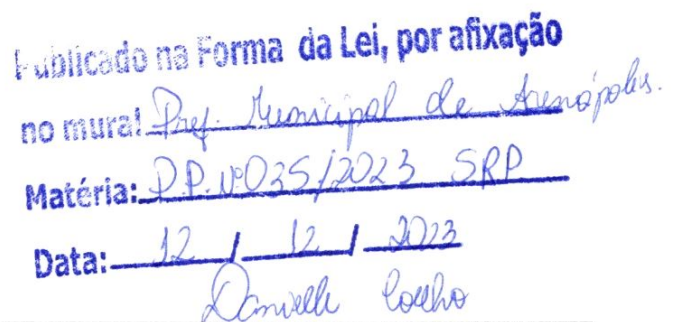 Publicado na Forma da Lei, por afixação
no mural Pref. Municipal de Arenápolis.
Matéria: P.P. Nº 035/2023 SRP
Data: 12 / 12 / 2023
Danielle Coelho